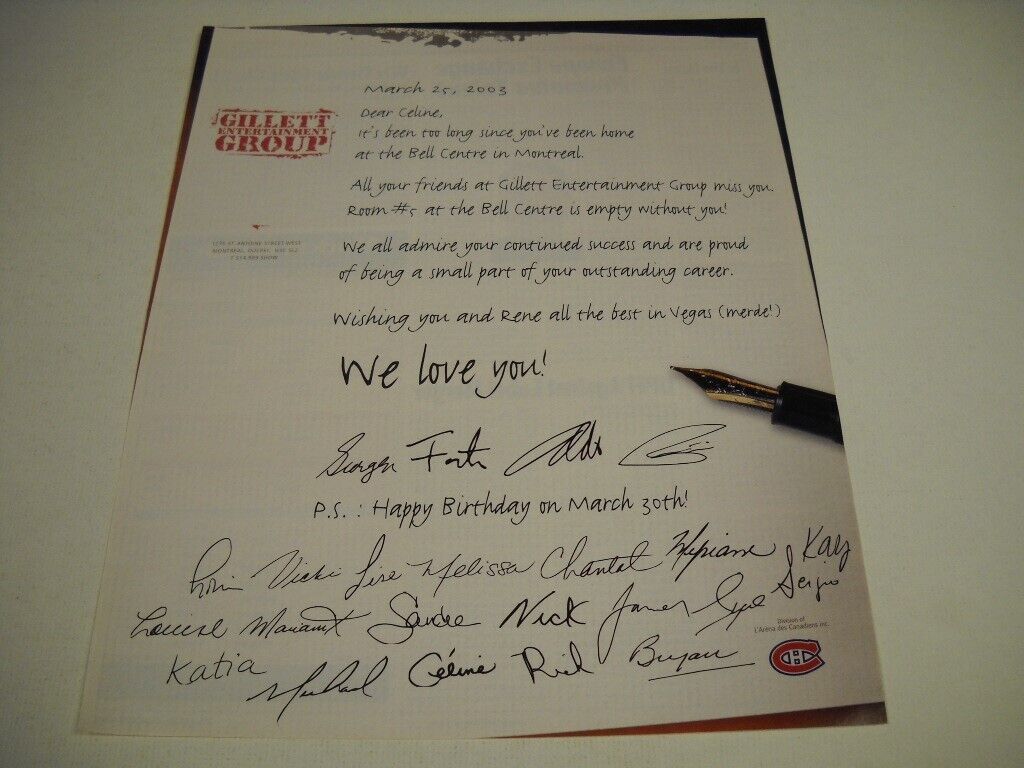 March 25, 2003
GILLETT
ENTERTAINMENT
GROUP
Dear Celine,
It's been too long since you've been home
at the Bell Centre in Montreal.
All your friends at Gillett Entertainment Group miss you.
Room #5 at the Bell Centre is empty without you!
1275 ST. ANTOINE STREET WEST
MONTREAL, QUEBEC, H3C 5L2
T 514.989.SHOW
We all admire your continued success and are proud
of being a small part of your outstanding career.
Wishing you and Rene all the best in Vegas (merde!)
We love you!
P.S. : Happy Birthday on March 30th!
Vicki Lise Melissa Chantal Kay
Louise Nick James Sergio
Katia Michael Céline Rick Bryan
Division of
L'Aréna des Canadiens inc.